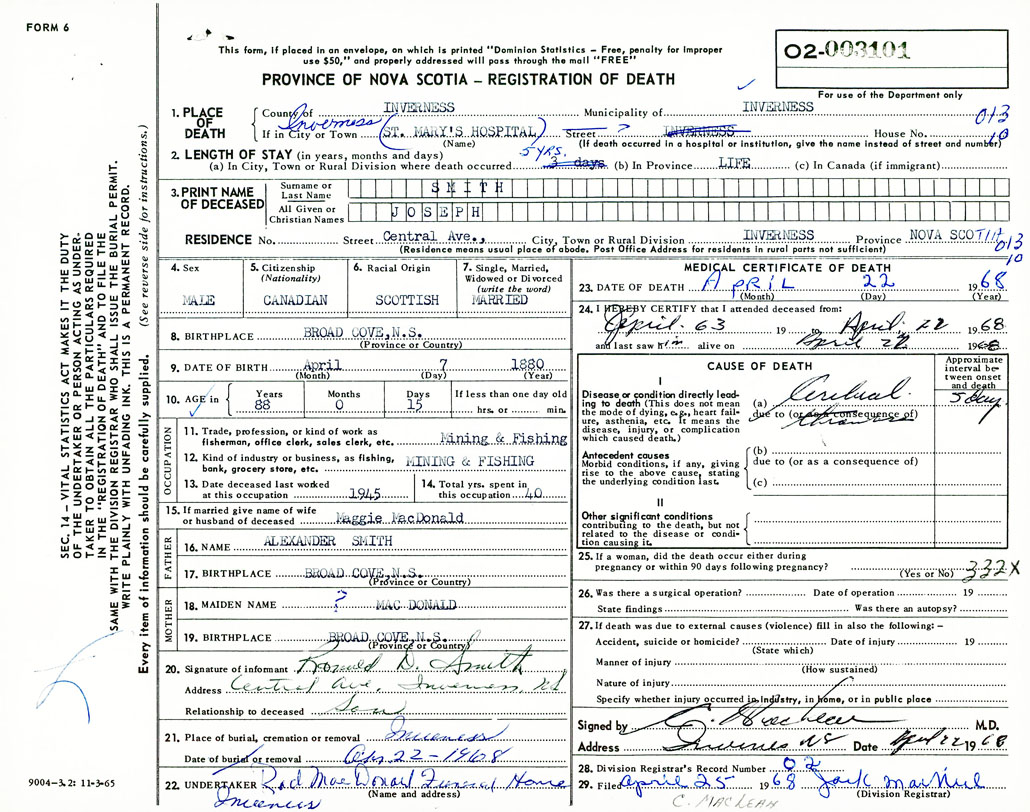 FORM 6
This form, if placed in an envelope, on which is printed "Dominion Statistics – Free, penalty for improper
use $50," and properly addressed will pass through the mail "FREE"
PROVINCE OF NOVA SCOTIA – REGISTRATION OF DEATH
O2-003101
For use of the Department only
1. PLACE OF DEATH
County of INVERNESS Municipality of INVERNESS 013
Inverness
If in City or Town (ST. MARY'S HOSPITAL) Street ? INVERNESS House No. 10
(Name) (If death occurred in a hospital or institution, give the name instead of street and number)
2. LENGTH OF STAY (in years, months and days) 5 YRS.
(a) In City, Town or Rural Division where death occurred 3 days (b) In Province LIFE (c) In Canada (if immigrant)
3. PRINT NAME OF DECEASED
Surname or Last Name SMITH
All Given or Christian Names JOSEPH
RESIDENCE No. Street Central Ave., City, Town or Rural Division INVERNESS Province NOVA SCOTIA 013
(Residence means usual place of abode. Post Office Address for residents in rural parts not sufficient) 10
4. Sex MALE
5. Citizenship (Nationality) CANADIAN
6. Racial Origin SCOTTISH
7. Single, Married, Widowed or Divorced (write the word) MARRIED
8. BIRTHPLACE BROAD COVE, N.S.
(Province or Country)
9. DATE OF BIRTH April 7 1880
(Month) (Day) (Year)
10. AGE in Years 88 Months 0 Days 15 If less than one day old hrs. or min.
OCCUPATION
11. Trade, profession, or kind of work as
fisherman, office clerk, sales clerk, etc. Mining & Fishing
12. Kind of industry or business, as fishing,
bank, grocery store, etc. MINING & FISHING
13. Date deceased last worked
at this occupation 1945
14. Total yrs. spent in
this occupation 40
15. If married give name of wife
or husband of deceased Maggie MacDonald
FATHER
16. NAME ALEXANDER SMITH
17. BIRTHPLACE BROAD COVE, N.S.
(Province or Country)
MOTHER
18. MAIDEN NAME ? MAC DONALD
19. BIRTHPLACE BROAD COVE, N.S.
(Province or Country)
20. Signature of informant Ronald D. Smith
Address Central Ave, Inverness, NS
Relationship to deceased Son
21. Place of burial, cremation or removal Inverness
Date of burial or removal Apr. 22 – 1968
22. UNDERTAKER Rod MacDonald Funeral Home
(Name and address)
Inverness
MEDICAL CERTIFICATE OF DEATH
23. DATE OF DEATH APRIL 22 1968
(Month) (Day) (Year)
24. I HEREBY CERTIFY that I attended deceased from:
April 63 19 to April 22 1968
and last saw him alive on April 22 1968
CAUSE OF DEATH
Approximate interval between onset and death
I
Disease or condition directly leading to death (This does not mean the mode of dying, e.g., heart failure, asthenia, etc. It means the disease, injury, or complication which caused death.)
(a) Cerebral 5 day
due to (or as a consequence of)
Antecedent causes
Morbid conditions, if any, giving rise to the above cause, stating the underlying condition last.
(b)
due to (or as a consequence of)
(c)
II
Other significant conditions
contributing to the death, but not related to the disease or condition causing it.
25. If a woman, did the death occur either during
pregnancy or within 90 days following pregnancy?
(Yes or No) 332X
26. Was there a surgical operation? Date of operation 19
State findings Was there an autopsy?
27. If death was due to external causes (violence) fill in also the following: –
Accident, suicide or homicide? Date of injury 19
(State which)
Manner of injury
(How sustained)
Nature of injury
Specify whether injury occurred in Industry, in home, or in public place
Signed by C. MacLean M.D.
Address Inverness NS Date April 22 1968
28. Division Registrar's Record Number 02
29. Filed April 25 1968 Jack MacNeil
(Division Registrar)
C. MACLEAN
SEC. 14 – VITAL STATISTICS ACT MAKES IT THE DUTY
OF THE UNDERTAKER OR PERSON ACTING AS UNDER-
TAKER TO OBTAIN ALL THE PARTICULARS REQUIRED
IN THE "REGISTRATION OF DEATH" AND TO FILE THE
SAME WITH THE DIVISION REGISTRAR WHO SHALL ISSUE THE BURIAL PERMIT.
WRITE PLAINLY WITH UNFADING INK. THIS IS A PERMANENT RECORD.
Every item of information should be carefully supplied. (See reverse side for instructions.)
9004–3.2: 11-3-65